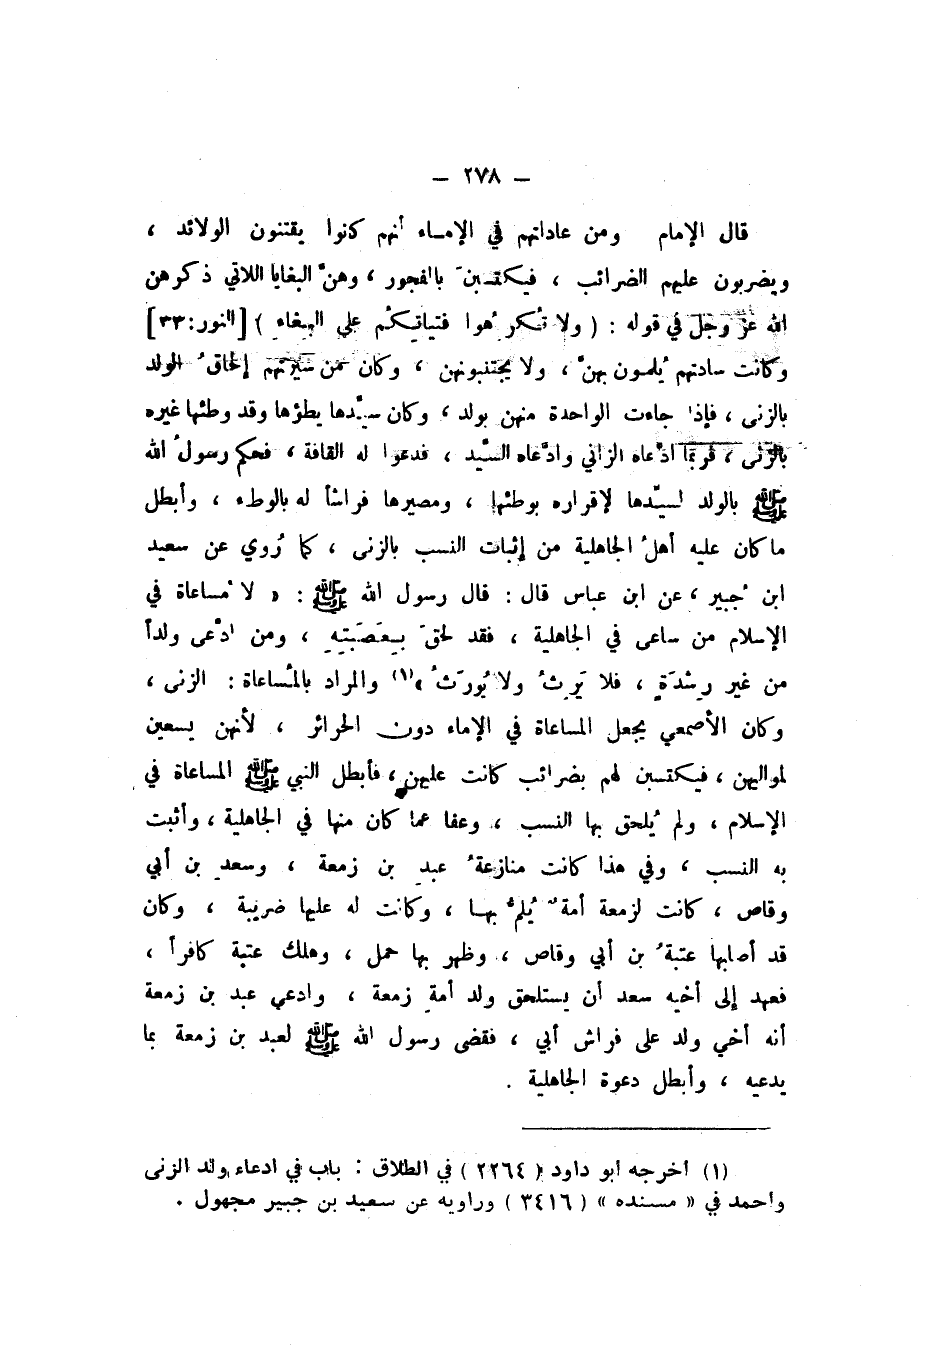 – ٢٧٨ –
قال الإمام ومن عاداتهم في الإمـاء أنهم كانوا يقتنون الولائد ،
ويضربون عليهم الضرائب ، فيكتسبنَ بالفجور ، وهنَّ البغايا اللاتي ذكرهن
الله عزَّ وجلَّ في قوله : ( ولا تُكرِهُوا فتياتِكُم على البِغاءِ ) [النور:٣٣]
وكانت سادتهم يُلمون بهنَّ ، ولا يجتنبونهن ، وكان من سيرتهم إلحاقُ الولد
بالزنى ، فإذا جاءت الواحدة منهن بولد ، وكان سيِّدها يطؤها وقد وطئها غيره
بالزنى ، فربما ادَّعاه الزاني وادَّعاه السيِّد ، فدعوا له القافة ، فحكم رسولُ الله
ﷺ بالولد لسيِّدها لإقراره بوطئها ، ومصيرها فراشاً له بالوطء ، وأبطل
ما كان عليه أهلُ الجاهلية من إثبات النسب بالزنى ، كما رُوي عن سعيد
ابن جُبير ، عن ابن عباس قال : قال رسول الله ﷺ : « لا مُساعاة في
الإسلام من ساعى في الجاهلية ، فقد لحقَ بِعَصَبَتِهِ ، ومن ادَّعى ولداً
من غير رِشْدَةٍ ، فلا يَرِثُ ولا يُورَثُ »(١) والمراد بالمُساعاة : الزنى ،
وكان الأصمعي يجعل المساعاة في الإماء دون الحرائر ، لأنهن يسعين
لمواليهن ، فيكتسبن لهم بضرائب كانت عليهن ، فأبطل النبي ﷺ المساعاة في
الإسلام ، ولم يُلحق بها النسب ، وعفا عما كان منها في الجاهلية ، وأثبت
به النسب ، وفي هذا كانت منازعةُ عبدِ بن زمعة ، وسعدِ بن أبي
وقاص ، كانت لزمعة أمةٌ يُلمُّ بهـا ، وكانت له عليها ضريبة ، وكان
قد أصابها عتبةُ بن أبي وقاص ، وظهر بها حمل ، وهلك عتبة كافراً ،
فعهد إلى أخيه سعد أن يستلحق ولد أمةِ زمعة ، وادعى عبد بن زمعة
أنه أخي ولد على فراش أبي ، فقضى رسول الله ﷺ لعبد بن زمعة بما
يدعيه ، وأبطل دعوة الجاهلية .
(١) أخرجه أبو داود ( ٢٢٦٤ ) في الطلاق : باب في ادعاء ولد الزنى
واحمد في « مسنده » ( ٣٤١٦ ) وراويه عن سعيد بن جبير مجهول .